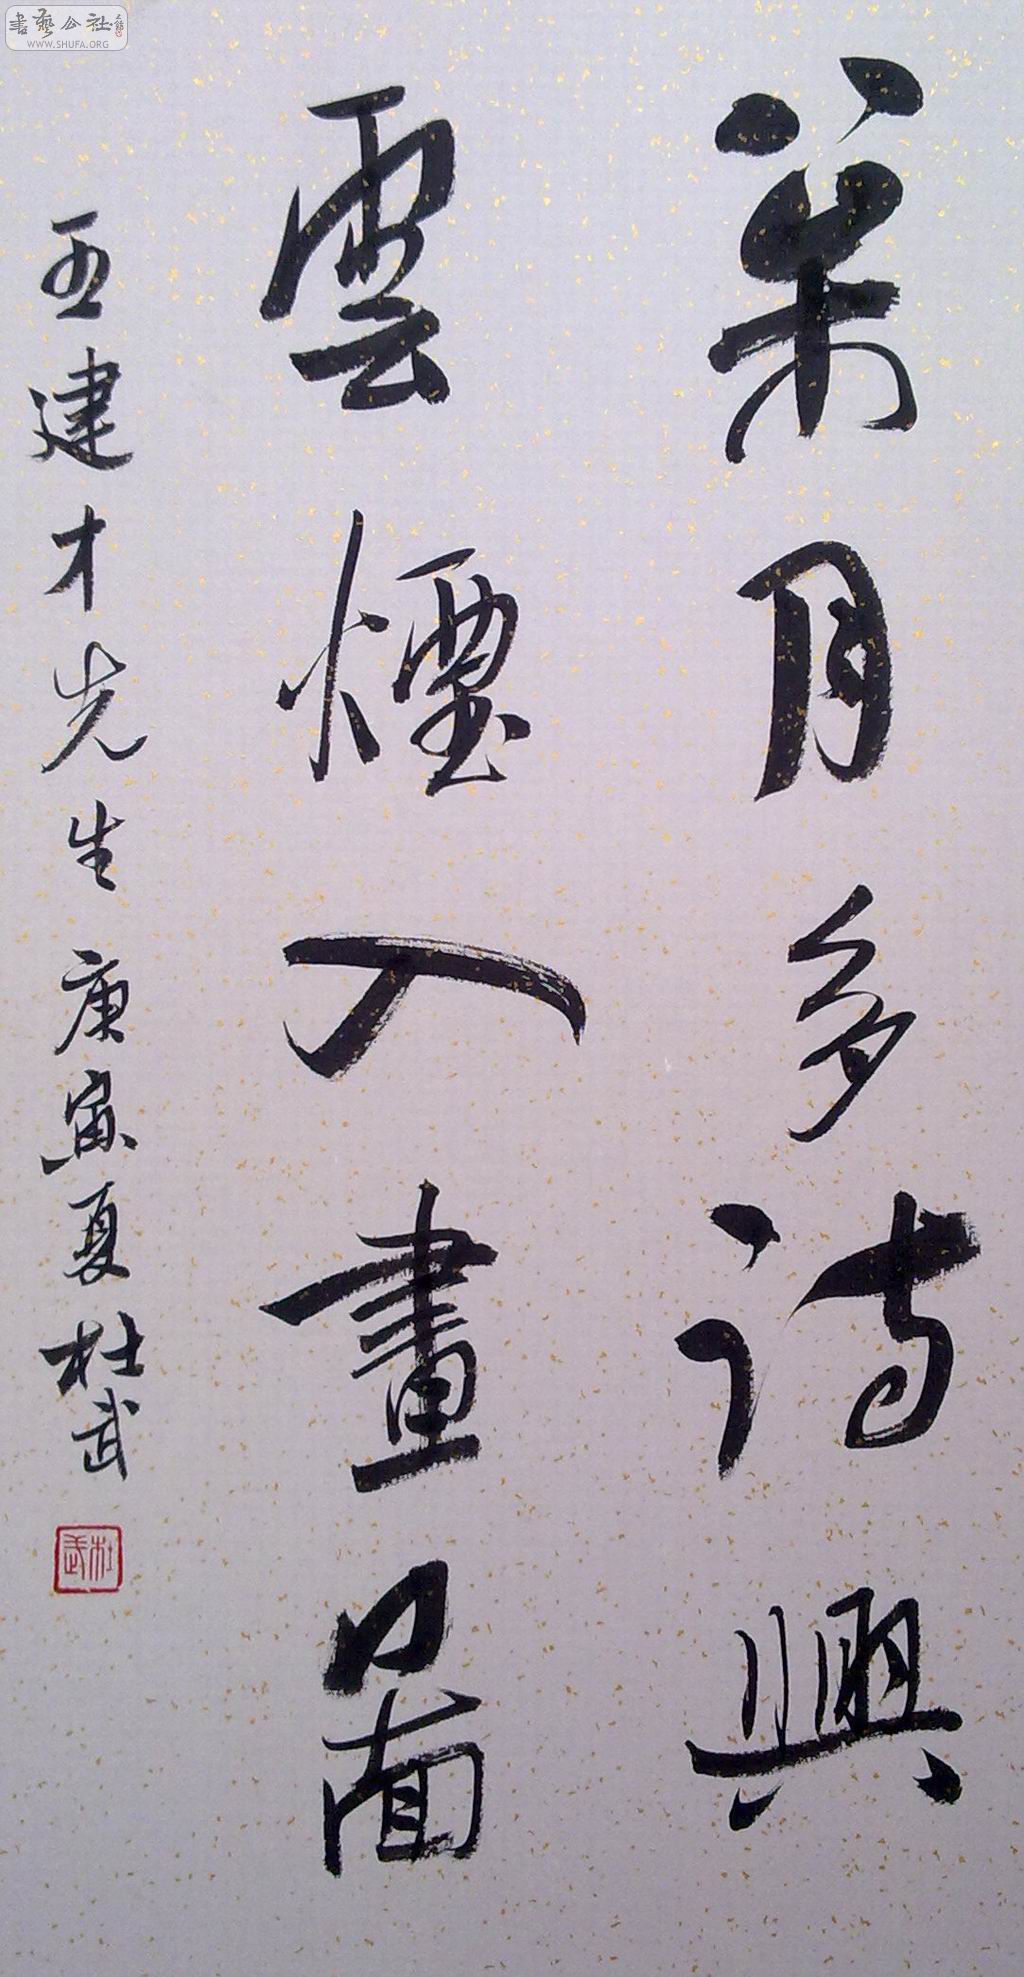 書藝公社
WWW.SHUFA.ORG
月多詩興
雲煙入畫啚
建才先生庚寅夏杜武
杜武